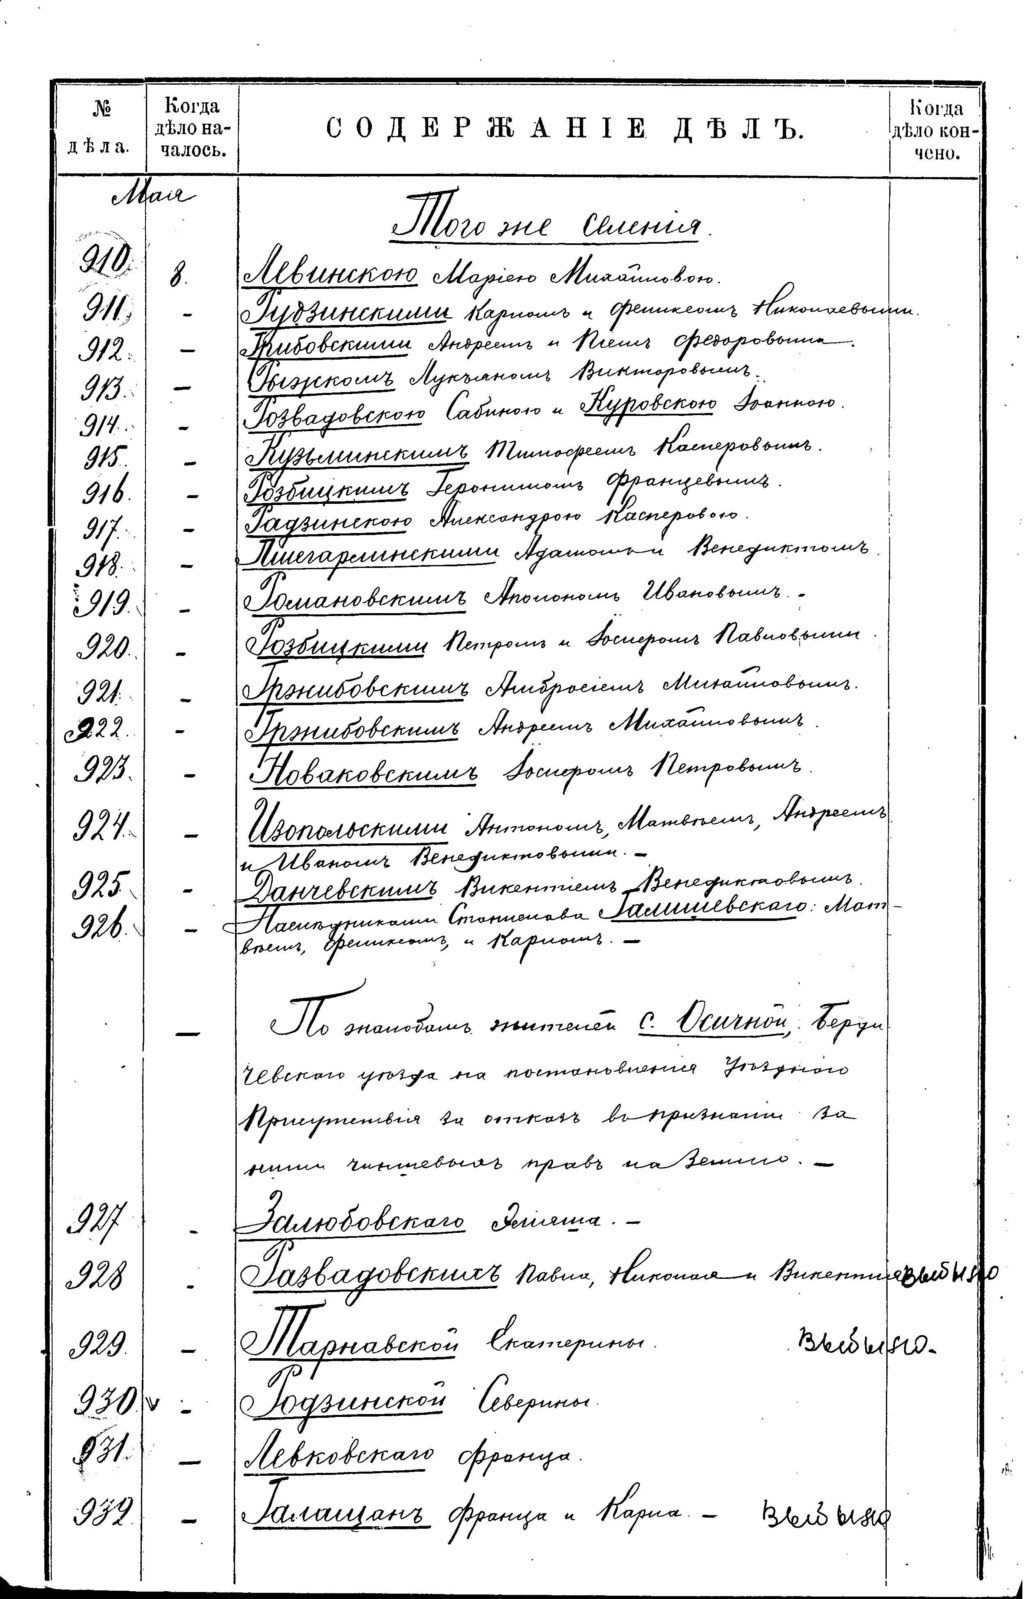 № дѣла.
Когда дѣло началось.
СОДЕРЖАНІЕ ДѢЛЪ.
Когда дѣло кончено.
Мая
Того же селенія.
910. 8. Левинскою Маріею Михайловою.
911. - Рудзинскими Карломъ и Феликсомъ Николаевыми.
912. - Грибовскими Андреемъ и Піемъ Федоровыми.
913. - Рыжскомъ Лукьяномъ Викторовымъ.
914. - Розвадовскою Сабиною и Куровскою Іоанною.
915. - Кузьминскимъ Тимофеемъ Касперовымъ.
916. - Розбицкимъ Геронимомъ Францевымъ.
917. - Радзинскою Александрою Касперовою.
918. - Адамомъ и Венедиктомъ.
919. - Романовскимъ Аполономъ Ивановымъ. -
920. - Розбицкими Петромъ и Іосифомъ Павловыми.
921. - Гржибовскимъ Амбросіемъ Михайловымъ.
922. - Гржибовскимъ Андреемъ Михайловымъ.
923. - Новаковскимъ Іосифомъ Петровымъ.
924. - Изопольскими Антономъ, Матвѣемъ, Андреемъ
и Иваномъ Венедиктовыми. -
925. - Данчевскимъ Викентіемъ Венедиктовымъ.
926. - Наслѣдниками Станислава Галишевскаго: Мат-
вѣемъ, Феликсомъ, и Карломъ. -
- По жалобамъ жителей с. Осичной, Берди
чевскаго уѣзда на постановленія Уѣзднаго
Присутствія за отказъ въ признаніи за
ними чиншевыхъ правъ на землю. -
927 - Залюбовскаго -
928 - Развадовскихъ Павла, Николая и Викентія выбыло
929. - Тарнавской Екатерины. выбыло.
930 v - Родзинской Северины.
931. - Левковскаго Франца.
932. - Галащанъ Франца и Карла. - выбыло